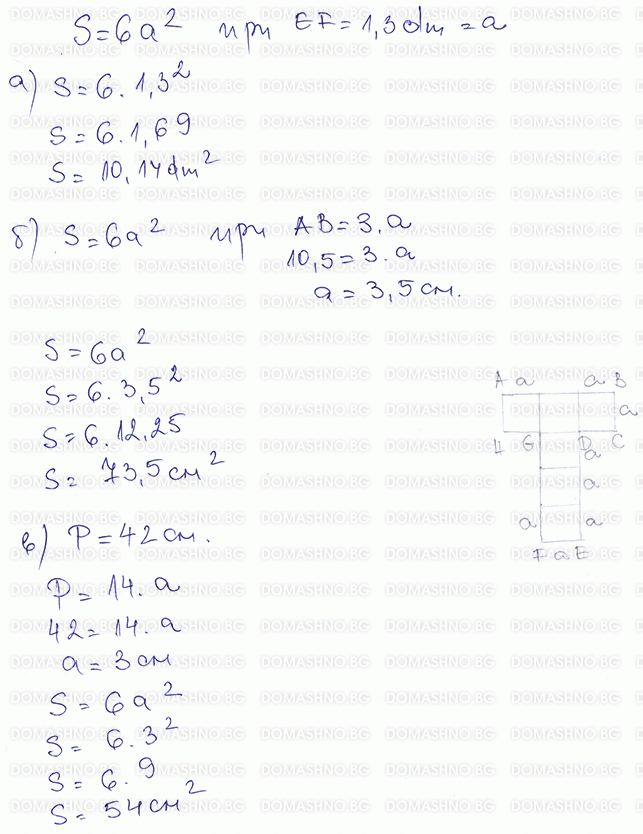 S=6a² при EF=1,3dm=a
а) S=6.1,3²
S=6.1,69
S=10,14dm²
б) S=6a² при AB=3.a
10,5=3.a
a=3,5см.
S=6a²
S=6.3,5²
S=6.12,25
S=73,5см²
A a a B
a
H G D C
a
a
a a
F a E
в) P=42см.
P=14.a
42=14.a
a=3см
S=6a²
S=6.3²
S=6.9
S=54см²
DOMASHNO.BG